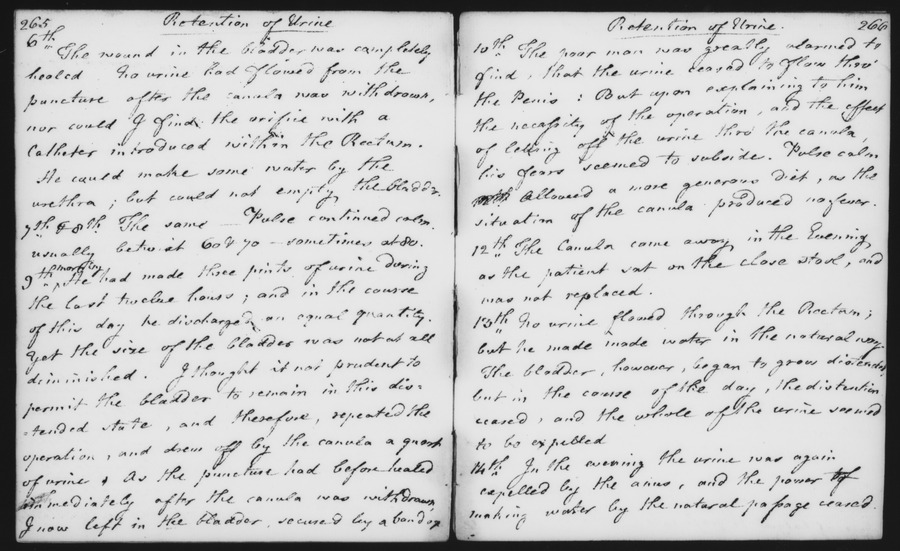 265 Retention of Urine
6th The wound in the bladder was completely
healed no urine had flowed from the
puncture after the canula was withdrawn,
nor could I find the orifice with a
Catheter introduced within the Rectum.
He could make some water by the
urethra; but could not empty the bladder.
7th & 8th The same — Pulse continued calm
usually betwixt 60 & 70 — sometimes at 80.
9th morning He had made three pints of urine during
the last twelve hours; and in the course
of this day he discharged an equal quantity.
Yet the size of the bladder was not at all
diminished. I thought it not prudent to
permit the bladder to remain in this dis=
=tended state, and therefore, repeated the
operation, and drew off by the canula a quart
of urine & As the puncture had before healed
immediately after the canula was withdrawn
I now left in the bladder, secured by a bandage
Retention of Urine. 266
10th The poor man was greatly alarmed to
find, that the urine ceased to flow thro'
the Penis: But upon explaining to him
the necessity of the operation, and the effect
of letting off the urine thro' the canula,
his fears seemed to subside. Pulse calm
Allowed a more generous diet, as the
situation of the canula produced no fever.
12th The Canula came away in the Evening,
as the patient sat on the close stool, and
was not replaced.
13th No urine flowed through the Rectum;
but he made made water in the natural way.
The bladder, however, began to grow distended
but in the course of the day, the distention
ceased, and the whole of the urine seemed
to be expelled
14th In the evening the urine was again
expelled by the anus, and the power of
making water by the natural passage ceased.